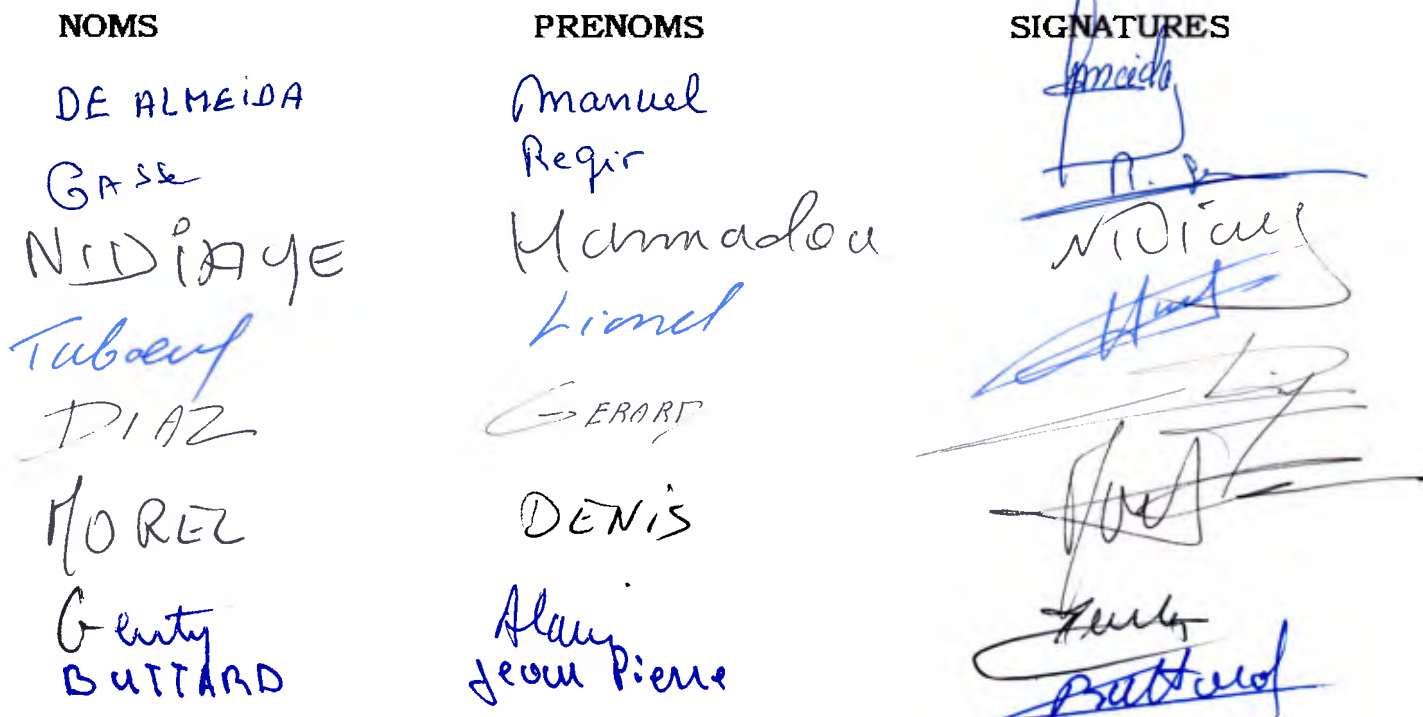 NOMS PRENOMS SIGNATURES
DE ALMEIDA Manuel
GASSE Regir
NDIAYE Mamadou NDiaye
Tuboeuf Lionel
DIAZ GERARD
MOREZ DENIS
Genty Alain
BUTTARD Jean Pierre Buttard